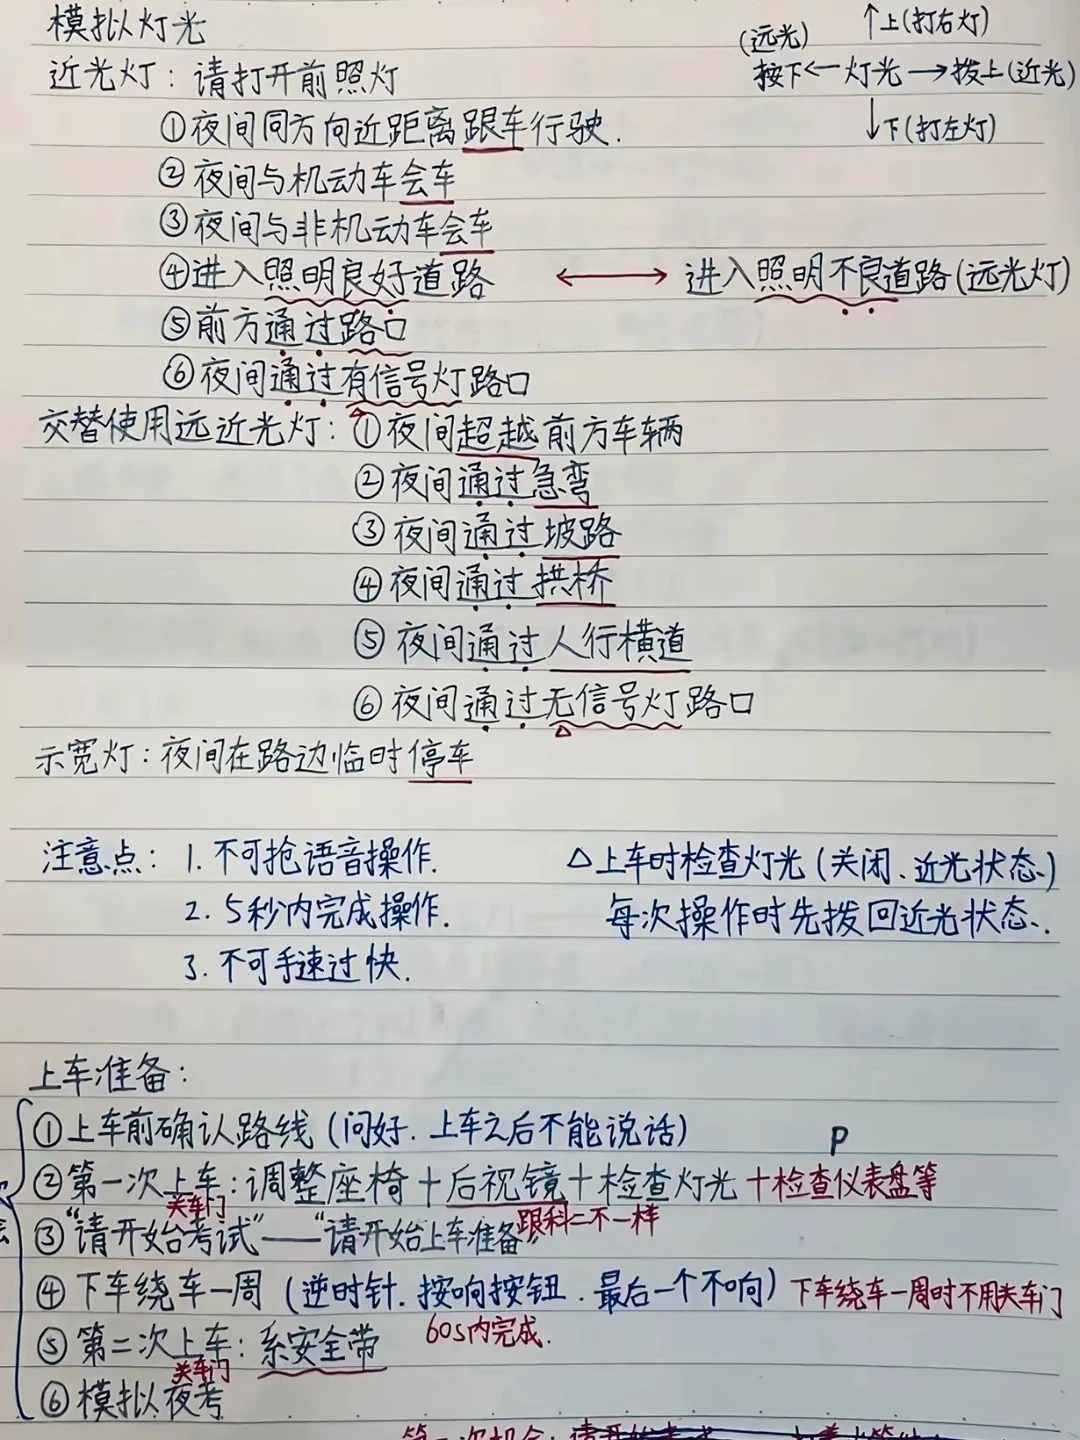 模拟灯光
(远光) ↑上(打右灯)
近光灯：请打开前照灯 按下←灯光→拨上(近光)
①夜间同方向近距离跟车行驶. ↓下(打左灯)
②夜间与机动车会车
③夜间与非机动车会车
④进入照明良好道路 ←→ 进入照明不良道路(远光灯)
⑤前方通过路口
⑥夜间通过有信号灯路口
交替使用远近光灯：①夜间超越前方车辆
②夜间通过急弯
③夜间通过坡路
④夜间通过拱桥
⑤夜间通过人行横道
⑥夜间通过无信号灯路口
示宽灯：夜间在路边临时停车
注意点：1.不可抢语音操作. △上车时检查灯光(关闭、近光状态.)
2.5秒内完成操作. 每次操作时先拨回近光状态.
3.不可手速过快.
上车准备：
①上车前确认路线(问好.上车之后不能说话) P
②第一次上车：调整座椅+后视镜+检查灯光+检查仪表盘等
关车门 跟科二不一样
③“请开始考试”——“请开始上车准备”
④下车绕车一周(逆时针.按响按钮.最后一个不响) 下车绕车一周时不用关车门
60s内完成.
⑤第二次上车：系安全带
关车门
⑥模拟夜考